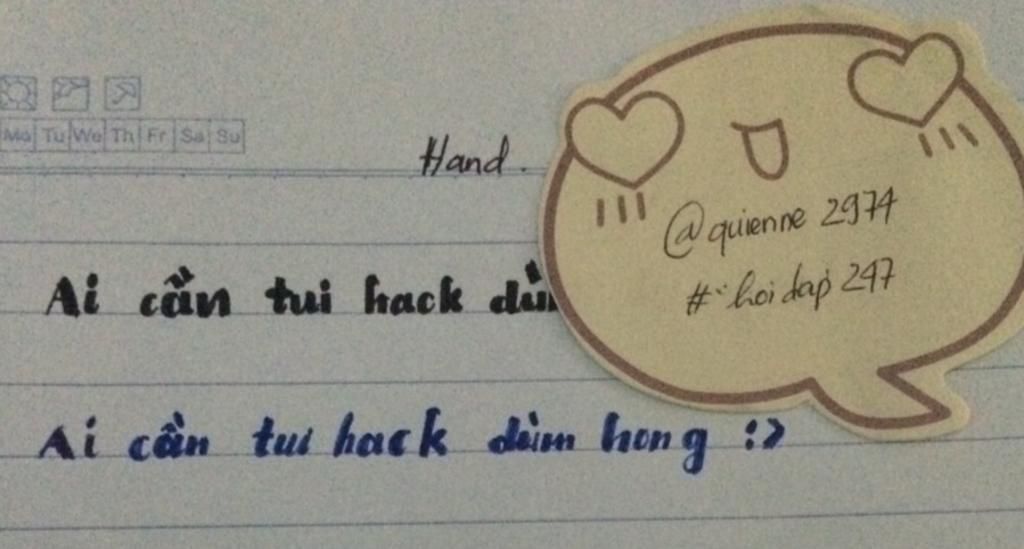 Mo Tu We Th Fr Sa Su
Hand.
@quienne 2974
#hoidap 247
Ai cần tui hack dù
Ai cần tui hack dùm hong :>